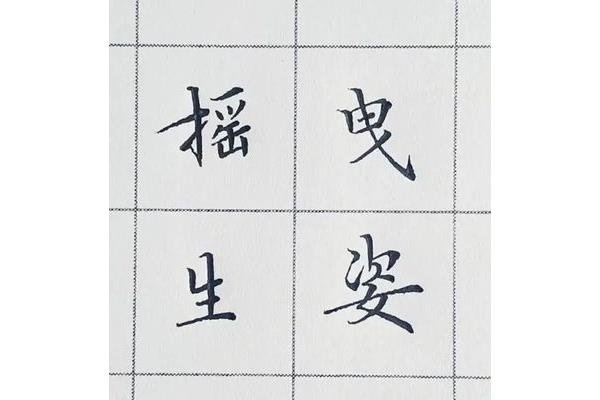 摇曳
生姿